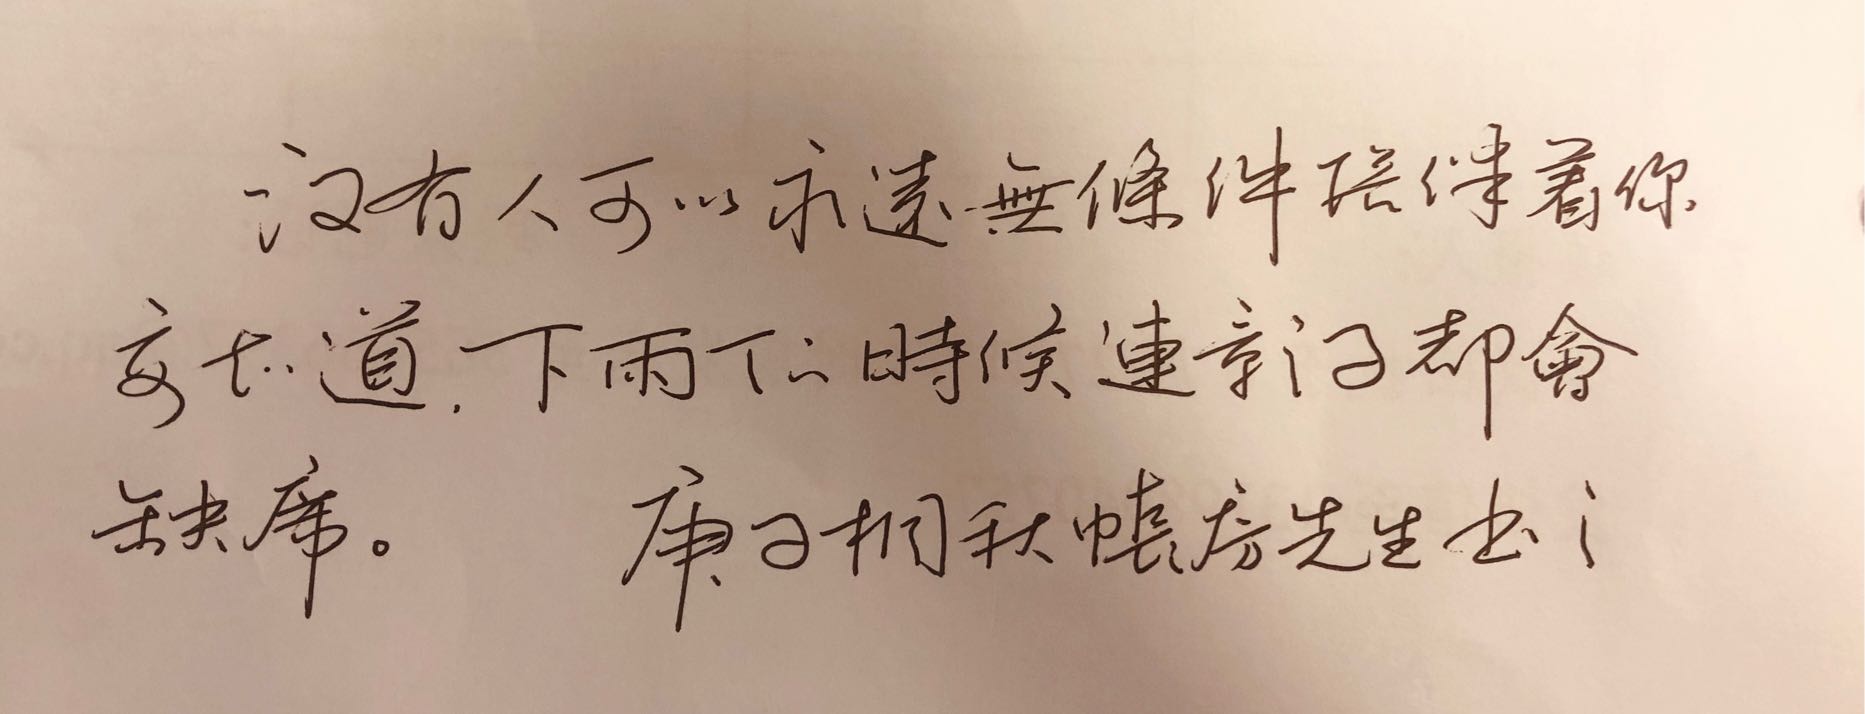 没有人可以永遠無條件陪伴着你
要知道.下雨的時候連影子都會
缺席。 庚子桐秋帳房先生书